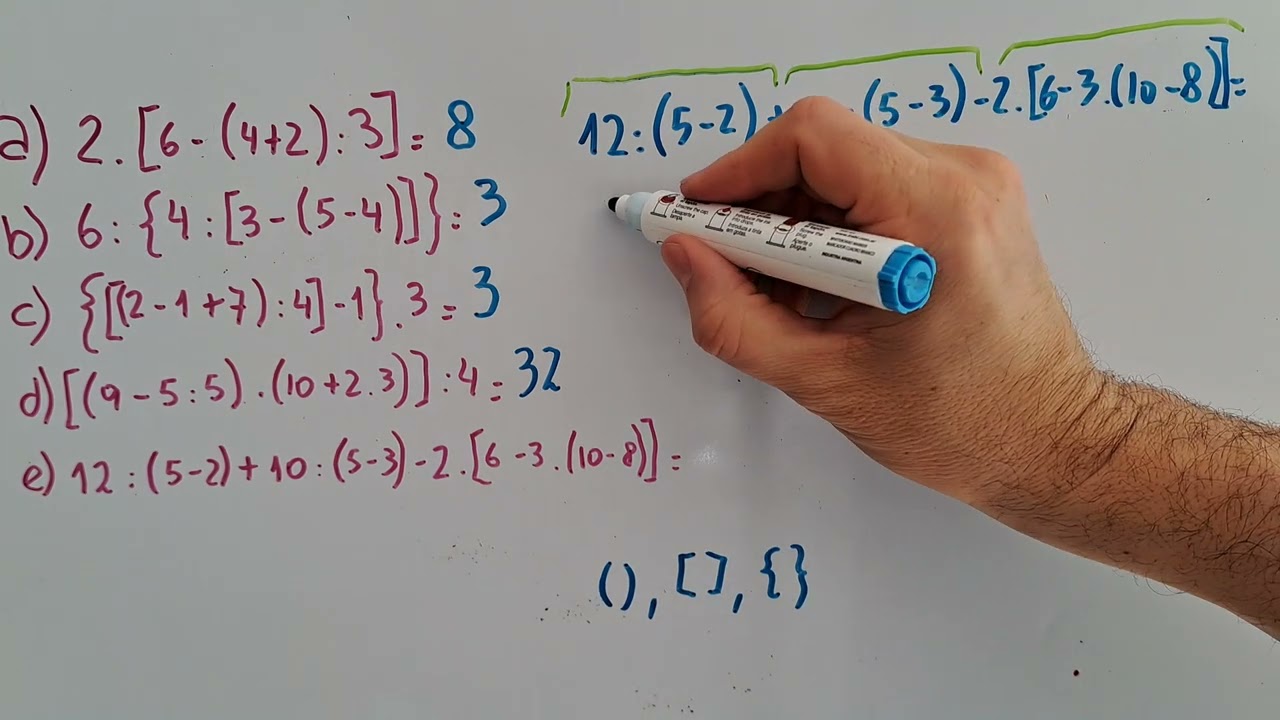 a) 2.[6-(4+2):3]= 8
b) 6:{4:[3-(5-4)]}= 3
c) {[(2-1+7):4]-1}.3= 3
d) [(9-5:5).(10+2.3)]:4= 32
e) 12:(5-2)+10:(5-3)-2.[6-3.(10-8)]=
12:(5-2)+ (5-3)-2.[6-3.(10-8)]=
(), [], {}
INDUSTRIA ARGENTINA